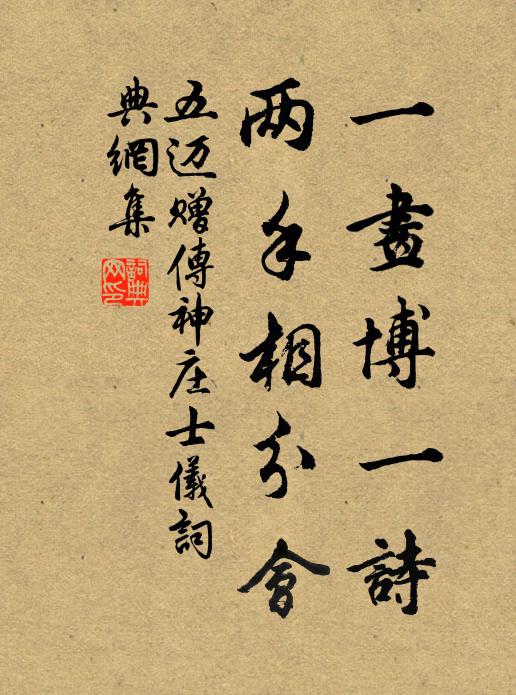 一畫博一詩
两手相分會
五迈贈傳神庄士儀詞
典網集
詞典網印